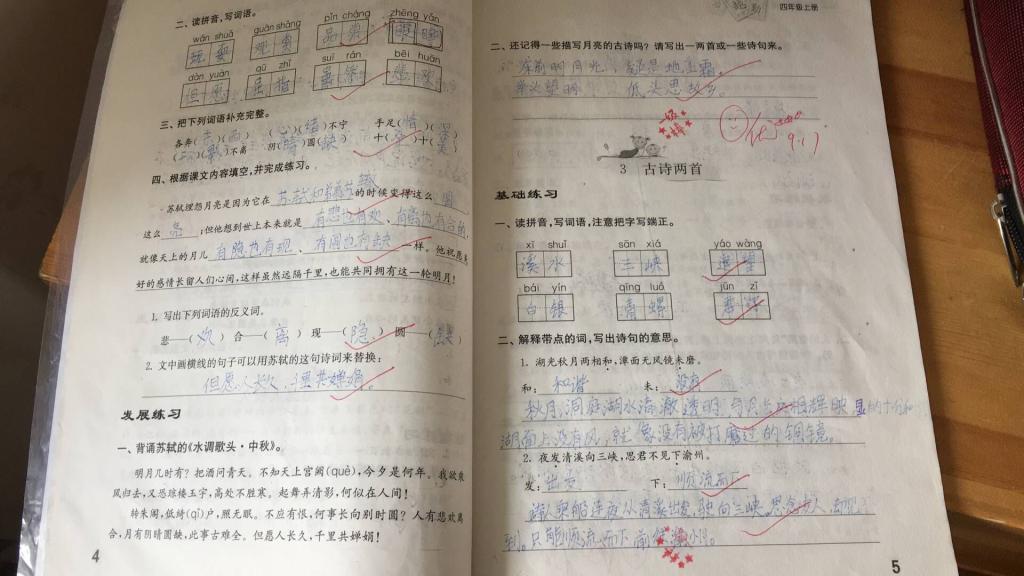 二、读拼音,写词语。
wán shuǎ guān shǎng pǐn cháng zhēng yǎn
dàn yuàn qū zhǐ suī rán bēi huān
但愿 屈指
三、把下列词语补充完整。
各奔( )( ) (心)(绪)不宁 手足(情)(深)
( )( )不离 阴(晴)圆(缺) 十( )十( )
四、根据课文内容填空,并完成练习。
苏轼埋怨月亮是因为它在 的时候变得这么 圆
这么 亮 ;但他想到世上本来就是 有悲也有欢、有离也有合的,
就像天上的月儿 有隐也有现、有圆也有缺 一样。他祝愿美
好的感情长留人们心间,这样虽然远隔千里,也能共同拥有这一轮明月!
1. 写出下列词语的反义词。
悲——(欢) 合——(离) 现——(隐) 圆——( )
2. 文中画横线的句子可以用苏轼的这句诗词来替换:
但愿人长久,千里共婵娟。
发展练习
一、背诵苏轼的《水调歌头·中秋》。
明月几时有?把酒问青天。不知天上宫阙(què),今夕是何年。我欲乘
风归去,又恐琼楼玉宇,高处不胜寒。起舞弄清影,何似在人间!
转朱阁,低绮(qǐ)户,照无眠。不应有恨,何事长向别时圆?人有悲欢离
合,月有阴晴圆缺,此事古难全。但愿人长久,千里共婵娟!
4
四年级上册
二、还记得一些描写月亮的古诗吗?请写出一两首或一些诗句来。
床前明月光,疑是地上霜。
举头望明 低头思故乡。
优 9.17
3 古诗两首
基础练习
一、读拼音,写词语,注意把字写端正。
xī shuǐ sān xiá yáo wàng
溪水 三峡 遥望
bái yín qīng luó jūn zǐ
白银 青螺
二、解释带点的词,写出诗句的意思。
1. 湖光秋月两相和,潭面无风镜未磨。
和: 和谐 未: 没有
秋月,洞庭湖水清澈透明,与 相辉映,显的十分和
湖面上没有风,就像没有被打磨过的铜镜。
2. 夜发清溪向三峡,思君不见下渝州。
发: 出发 下: 顺流而下
诗人乘船连夜从清溪出发,驶向三峡。思念
到。只能顺流而下
5